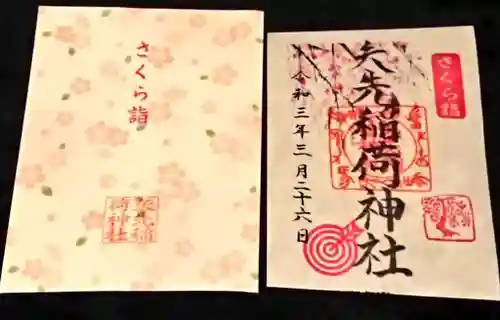 さくら詣
矢先稲荷神社
さくら詣
矢先稲荷神社
令和三年三月二十六日